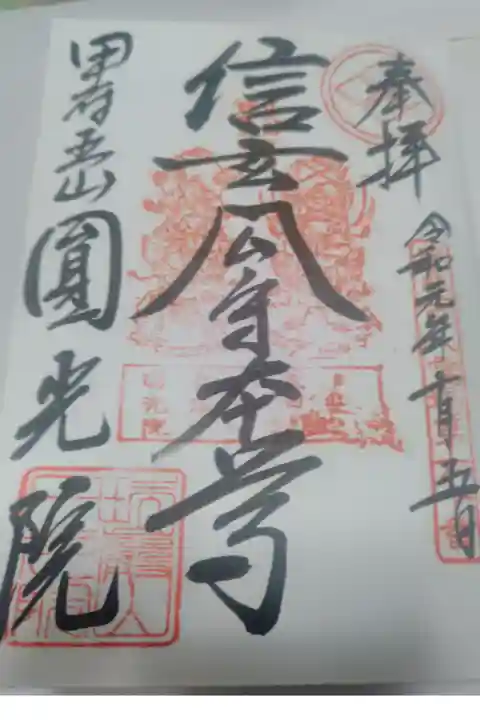 奉拝
令和元年十月五日
信玄公守本尊
甲府五山
圓光院